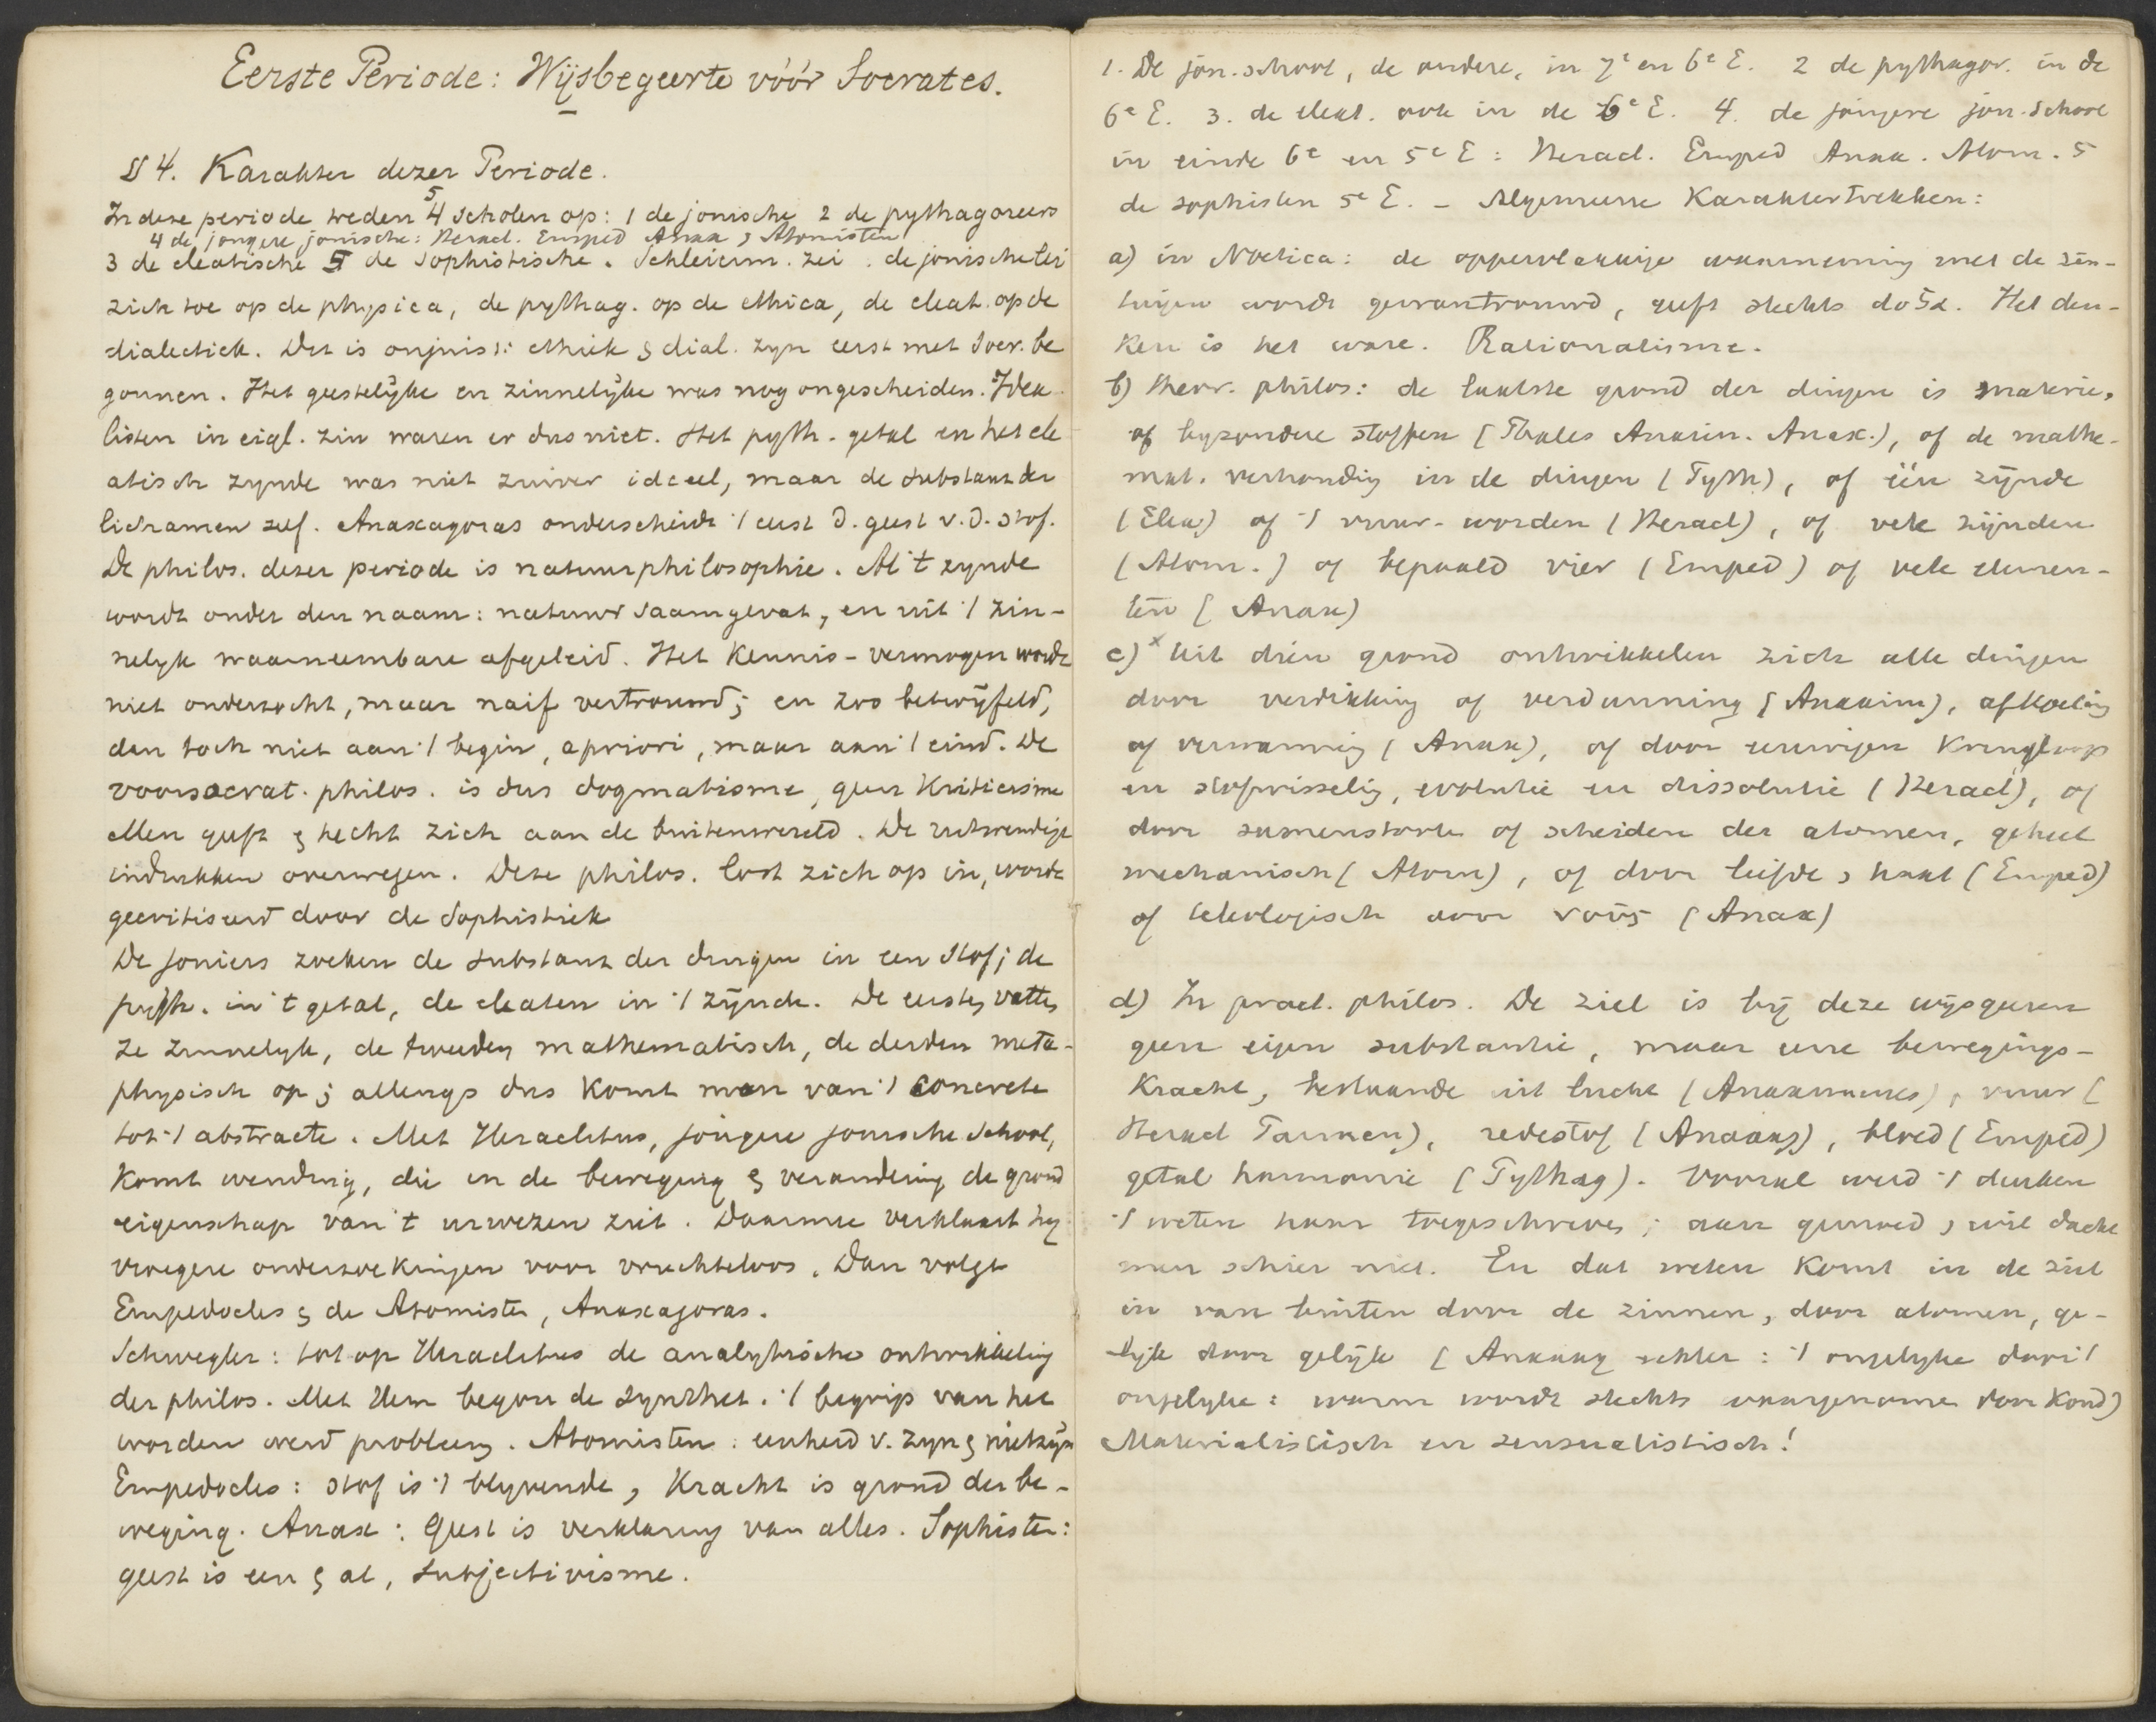 Eerste Periode: Wijsbegeerte vóór Socrates.
§ 4. Karakter dezer Periode.
5
In deze periode treden 4 scholen op: 1 de jonische 2 de pythagoreers
4 de jongere jonische: Heracl. Emped Anax & Atomisten
3 de eleatische 5 de Sophistische. Schleierm. zei: de jonische lei
zich toe op de physica, de pythag. op de ethica, de eleat. op de
dialectiek. Dit is onjuist: ethiek & dial. zyn eerst met Socr. be
gonnen. Het geestelijke en zinnelijke was nog ongescheiden. Idea
listen in eigl. zin waren er dus niet. Het pyth. getal en het ele
atisch zynde was niet zuiver ideeel, maar de substans der
lichamen zelf. Anaxagoras onderscheidt 't eerst d. geest v. d. stof.
De philos. dezer periode is natuurphilosophie. Al 't zynde
wordt onder den naam: natuur saamgevat, en uit 't zin-
nelyk waarneembare afgeleid. Het Kennis-vermogen wordt
niet onderzocht, maar naif vertrouwd; en zoo betwijfeld,
dan toch niet aan 't begin, apriori, maar aan 't eind. De
voorsocrat. philos. is dus dogmatisme, geen Kriticisme
Men geeft & hecht zich aan de buitenwereld. De uitwendige
indrukken overwegen. Deze philos. lost zich op in, wordt
gecritiseerd door de Sophistiek
De Joniers zoeken de substans der dingen in een stof; de
pyth. in 't getal, de eleaten in 't zijnde. De eersten vatten
ze zinnelyk, de tweeden mathematisch, de derden meta-
physisch op; allengs dus komt men van 't concrete
tot 't abstracte. Met Heraclitus, jongere jonische school,
komt wending, die in de beweging & verandering de grond
eigenschap van 't urwezen ziet. Daarmee verklaart hy
vroegere onderzoekingen voor vruchteloos. Dan volgt
Empedocles & de Atomisten, Anaxagoras.
Schwegler: tot op Heraclitus de analytische ontwikkeling
der philos. Met Hem begon de synthet. 't begrip van het
worden werd probleem. Atomisten: eenheid v. zyn & nietzijn
Empedocles: stof is 't blyvende, Kracht is grond der be-
weging. Anax: Geest is verklaring van alles. Sophisten:
geest is een & al, Subjectivisme.
1. De jon. school, de oudere, in 7e en 6e E. 2 de pythagor. in de
6e E. 3. de eleat. ook in de 6e E. 4. de jongere jon. school
in einde 6e en 5e E: Heracl. Emped Anax. Atom. 5
de sophisten 5e E. – Algemeene Karaktertrekken:
a) in Noetica: de oppervlakkige waarneming met de zin-
tuigen wordt gewantrouwd, geeft slechts δοξα. Het den-
ken is het ware. Rationalisme.
b) theor. philos: de laatste grond der dingen is materie,
of byzondere stoffen (Thales Anaxim. Anax.), of de mathe-
mat. verhouding in de dingen (Pyth), of één zijnde
(Elea) of 't vuur-worden (Heracl), of vele zijnden
(Atom.) of bepaald vier (Emped) of vele elemen-
ten (Anax)
c) x Uit dien grond ontwikkelen zich alle dingen
door verdikking of verdunning (Anaxim), afkoeling
of verwarming (Anax), of door eeuwigen Kringloop
en stofwisseling, evolutie en dissolutie (Heracl), of
door samenstorte of scheiden der atomen, geheel
mechanisch (Atom), of door liefde & haat (Emped)
of teleologisch door νοῦς (Anax)
d) In pract. philos. De ziel is bij deze wijsgeeren
geen eigen substantie, maar eene bewegings-
Kracht, bestaande uit lucht (Anaximenes), vuur (
Heracl Parmen), redestof (Anaxag), bloed (Emped)
getal harmonie (Pythag). Vooral werd 't denken
't weten haar toegeschreven; aan gemoed & wil dacht
men schier niet. En dat weten komt in de ziel
in van buiten door de zinnen, door atomen, ge-
lijk door gelijk (Anaxag echter: 't ongelyke door 't
ongelyke: warm wordt slechts waargenomen door koud)
Materialistisch en sensualistisch!